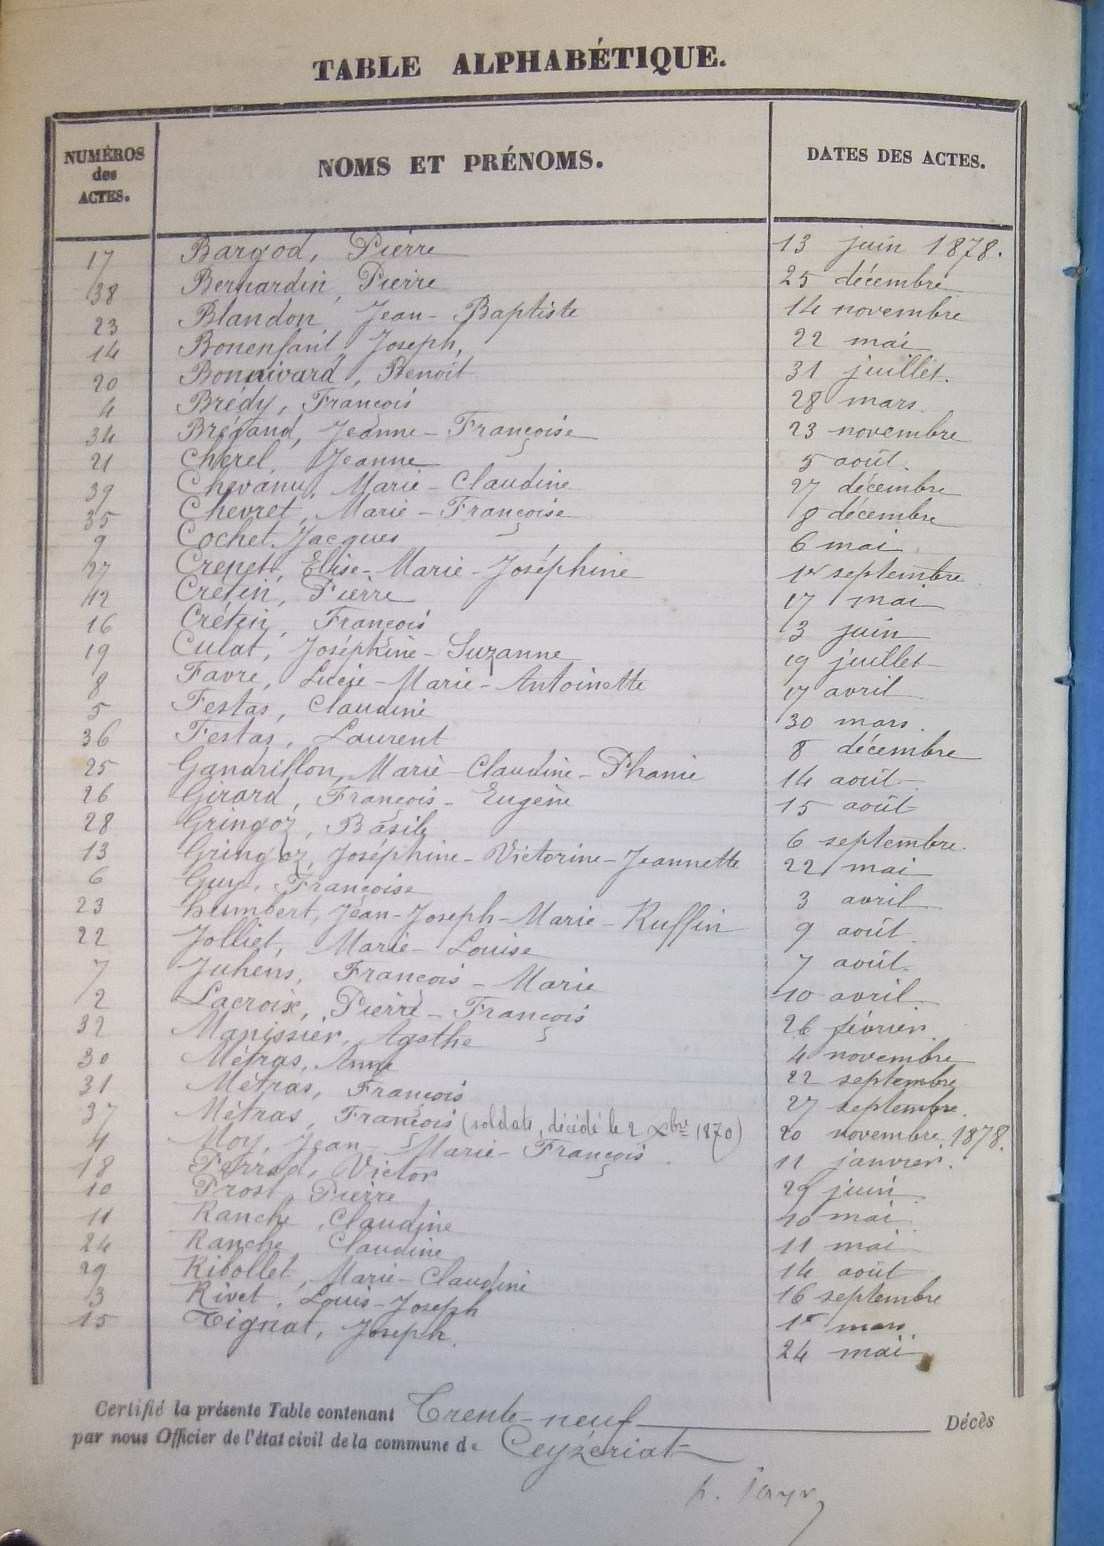 TABLE ALPHABÉTIQUE.
NUMÉROS des ACTES. NOMS ET PRÉNOMS. DATES DES ACTES.
17 Bargod, Pierre 13 juin 1878.
38 Bernardin, Pierre 25 décembre
23 Blandon, Jean-Baptiste 14 novembre
14 Bonenfant, Joseph, 22 mai
20 Bonnivard, Benoit 31 juillet.
4 Brédy, François 28 mars.
34 Brégand, Jeanne-Françoise 23 novembre
21 Chérel, Jeanne 5 août.
39 Chevanu, Marie-Claudine 27 décembre
35 Chevret, Marie-Françoise 8 décembre
9 Cochet, Jacques 6 mai
27 Crepet, Elise-Marie-Joséphine 1er septembre
12 Crétin, Pierre 17 mai
16 Crétin, François 3 juin
19 Culat, Joséphine-Suzanne 19 juillet
8 Favre, Lucie-Marie-Antoinette 17 avril
5 Festas, Claudine 30 mars.
36 Festas, Laurent 8 décembre
25 Gandrillon, Marie-Claudine-Phanie 14 août
26 Girard, François-Eugène 15 août
28 Gringoz, Basile 6 septembre.
13 Gringoz, Joséphine-Victorine-Jeannette 22 mai
6 Guy, Françoise 3 avril
23 humbert, Jean-Joseph-Marie-Ruffin 9 août.
22 Jolliet, Marie-Louise 7 août.
7 Juhens, François-Marie 10 avril
2 Lacroix, Pierre-François 26 février.
32 Manissier, Agathe 4 novembre
30 Métras, Anne 22 septembre
31 Métras, François 27 septembre.
37 Métras, François (soldat, décédé le 2 Xbre 1870) 20 novembre 1878.
1 Moy, Jean-Marie-François 11 janvier.
18 Perrod, Victor 29 juin
10 Prost, Pierre 10 mai
11 Ranche, Claudine 11 mai
24 Ranche, Claudine 14 août
29 Ribollet, Marie-Claudine 16 septembre
3 Rivet, Louis-Joseph 1er mars
15 Tignat, Joseph. 24 mai
Certifié la présente Table contenant Trente-neuf Décès
par nous Officier de l'état civil de la commune de Ceyzériat